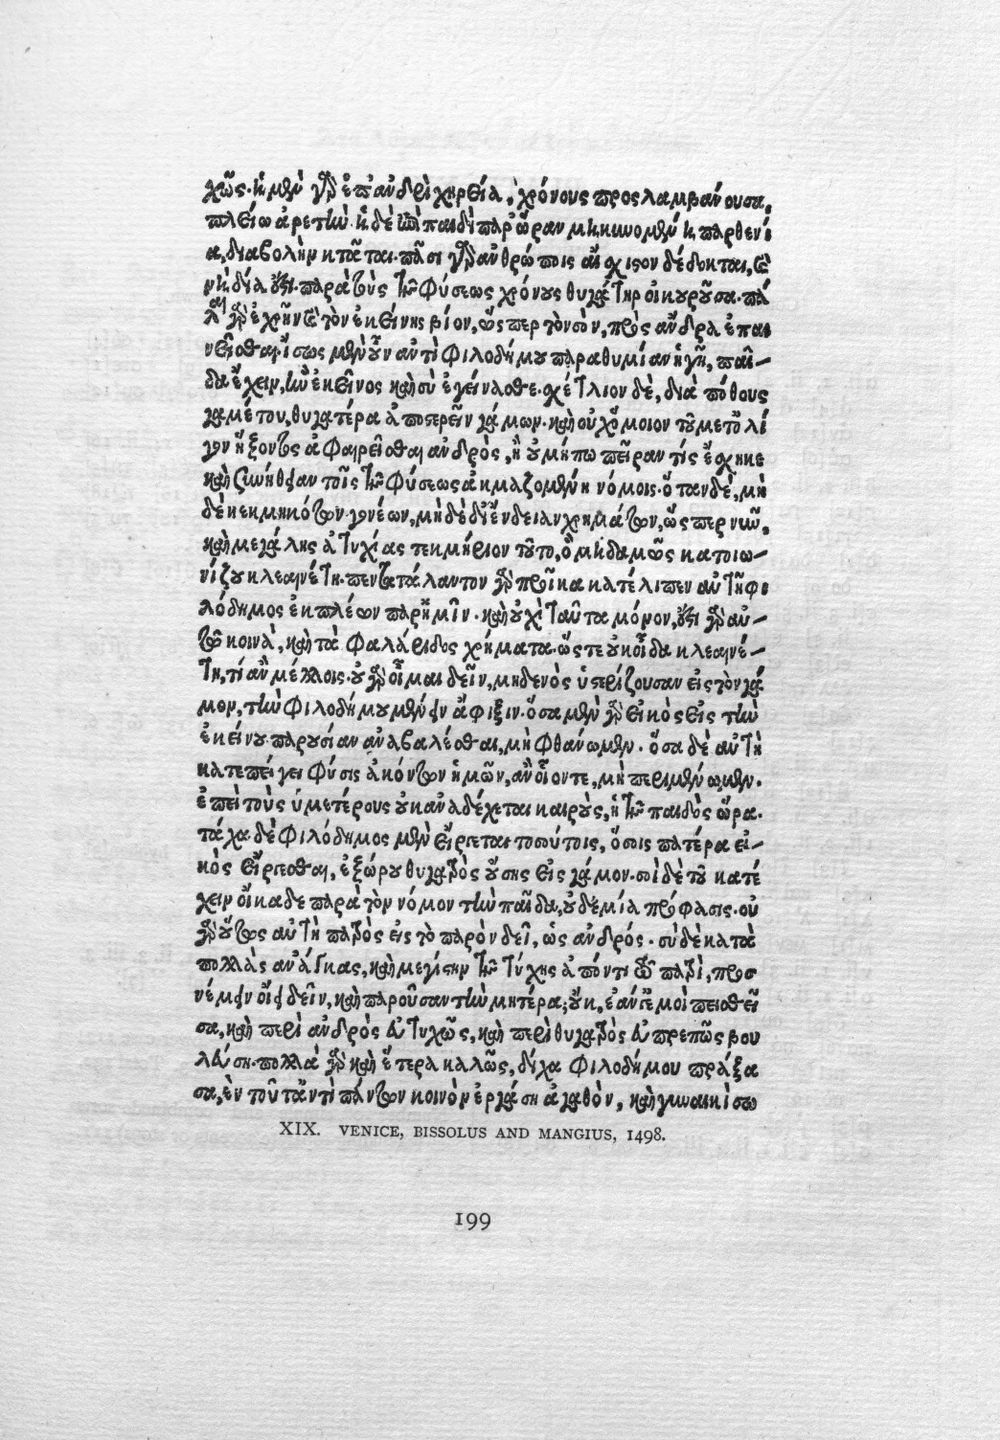 χῶς. ἡ μὲν γὰρ ἐπ' ἀνδρὶ χηρεία, χρόνους προσλαμβάνουσα,
πλείω ἀρετὴν. ἡ δὲ ἐπὶ παιδὶ παρ' ὥραν μὴ κινουμένη ἡ παρθενί
α, διαβολὴν κτᾶται. πᾶσι γὰρ ἀνθρώποις αἴσχιστον δέδοκται,
δία ἔστι. παρὰ τοὺς τῆς φύσεως χρόνους θυγάτηρ οἰκουροῦσα. πά
γὰρ ἐχρῆν τὸν ἐκείνης βίον, ὥσπερ τὸν σὸν, πρὸς ἄνδρα ἐπαι
νεῖσθαι. ἴσως μὲν οὖν ἀντὶ Φιλοδήμου παραθυμίαν ἡγῆ, παῖ-
δα ἔχειν, ἣν ἐκεῖνος καὶ σὺ ἐγείνασθε. σχέτλιον δὲ, διὰ πόθους
γαμέτου, θυγατέρα ἀποστερεῖν γάμων. καὶ οὐχ ὅμοιον τοῦ μετ' ὀλί
γον ἥξοντος ἀφαιρεῖσθαι ἀνδρὸς, ἢ οὗ μήπω πεῖραν τίς ἔσχηκε
καὶ ζημιοῦσθαι τοῖς τῆς φύσεως ἀκμαζομένη νόμοις. ὅταν δὲ, μὴ
δὲ κεκμηκότων γονέων, μὴ δὲ δι' ἔνδειαν χρημάτων, ὥσπερ νῦν,
καὶ μεγάλης ἀτυχίας τεκμήριον τοῦτο, ὃ μηδαμῶς κατοιω-
νίζου Κλεαινέτη. πεντετάλαντον γὰρ προῖκα κατέλιπεν αὐτῇ Φι
λόδημος ἐκπλέων παρ' ἡμῖν. καὶ οὐχὶ ταῦτα μόνον, ἔστι γὰρ αὐ-
τῷ κοινὰ, καὶ τὰ Φαλάριδος χρήματα. ὥστε οὐκ οἶδα Κλεαινέ-
τη, τί ἂν μέλλοις. οὐ γὰρ οἶμαι δεῖν, μηδενὸς ὑστερίζουσαν εἰς τὸν γά
μον, τὴν Φιλοδήμου μένειν ἄφιξιν. ὅσα μὲν γὰρ εἰκὸς εἰς τὴν
ἐκείνου παρουσίαν ἀναβαλέσθαι, μὴ φθάνωμεν. ὅσα δὲ αὐτὴ
κατεπείγει φύσις ἀκόντων ἡμῶν, ἂν οἷόν τε, μὴ περιμένωμεν.
ἐπεὶ τοὺς ὑμετέρους οὐκ ἀναδέχεται καιροὺς, ἡ τῆς παιδὸς ὥρα.
τάχα δὲ Φιλόδημος μὲν εἴρξεται τοσούτοις, ὅσοις πατέρα εἰ-
κὸς εἴργεσθαι, ἐξώρου θυγατρὸς οὔσης εἰς γάμον. σοὶ δὲ τοῦ κατέ
χειν οἴκαδε παρὰ τὸν νόμον τὴν παῖδα, οὐδεμία πρόφασις. οὐ
γὰρ οὕτως αὐτῇ πατρὸς εἰς τὸ παρὸν δεῖ, ὡς ἀνδρός. σὺ δὲ κατὰ
πολλὰς ἀνάγκας, καὶ μεγίστην τῆς τύχης ἀπόντι τῷ πατρὶ, προσ
νέμειν οἴει δεῖν, καὶ παροῦσαν τὴν μητέρα; οὔκ, ἐάν γε μοὶ πεισθεῖ
σα, καὶ περὶ ἀνδρὸς εὐτυχῶς, καὶ περὶ θυγατρὸς εὐπρεπῶς βου
λεύσῃ. πολλὰ γὰρ καὶ ἕτερα καλῶς, δίχα Φιλοδήμου πράξα
σα, ἓν τοῦτ' ἀντὶ πάντων κοινὸν ἐργάσῃ ἀγαθὸν, καὶ γυναικὶ σω
XIX. VENICE, BISSOLUS AND MANGIUS, 1498.
199